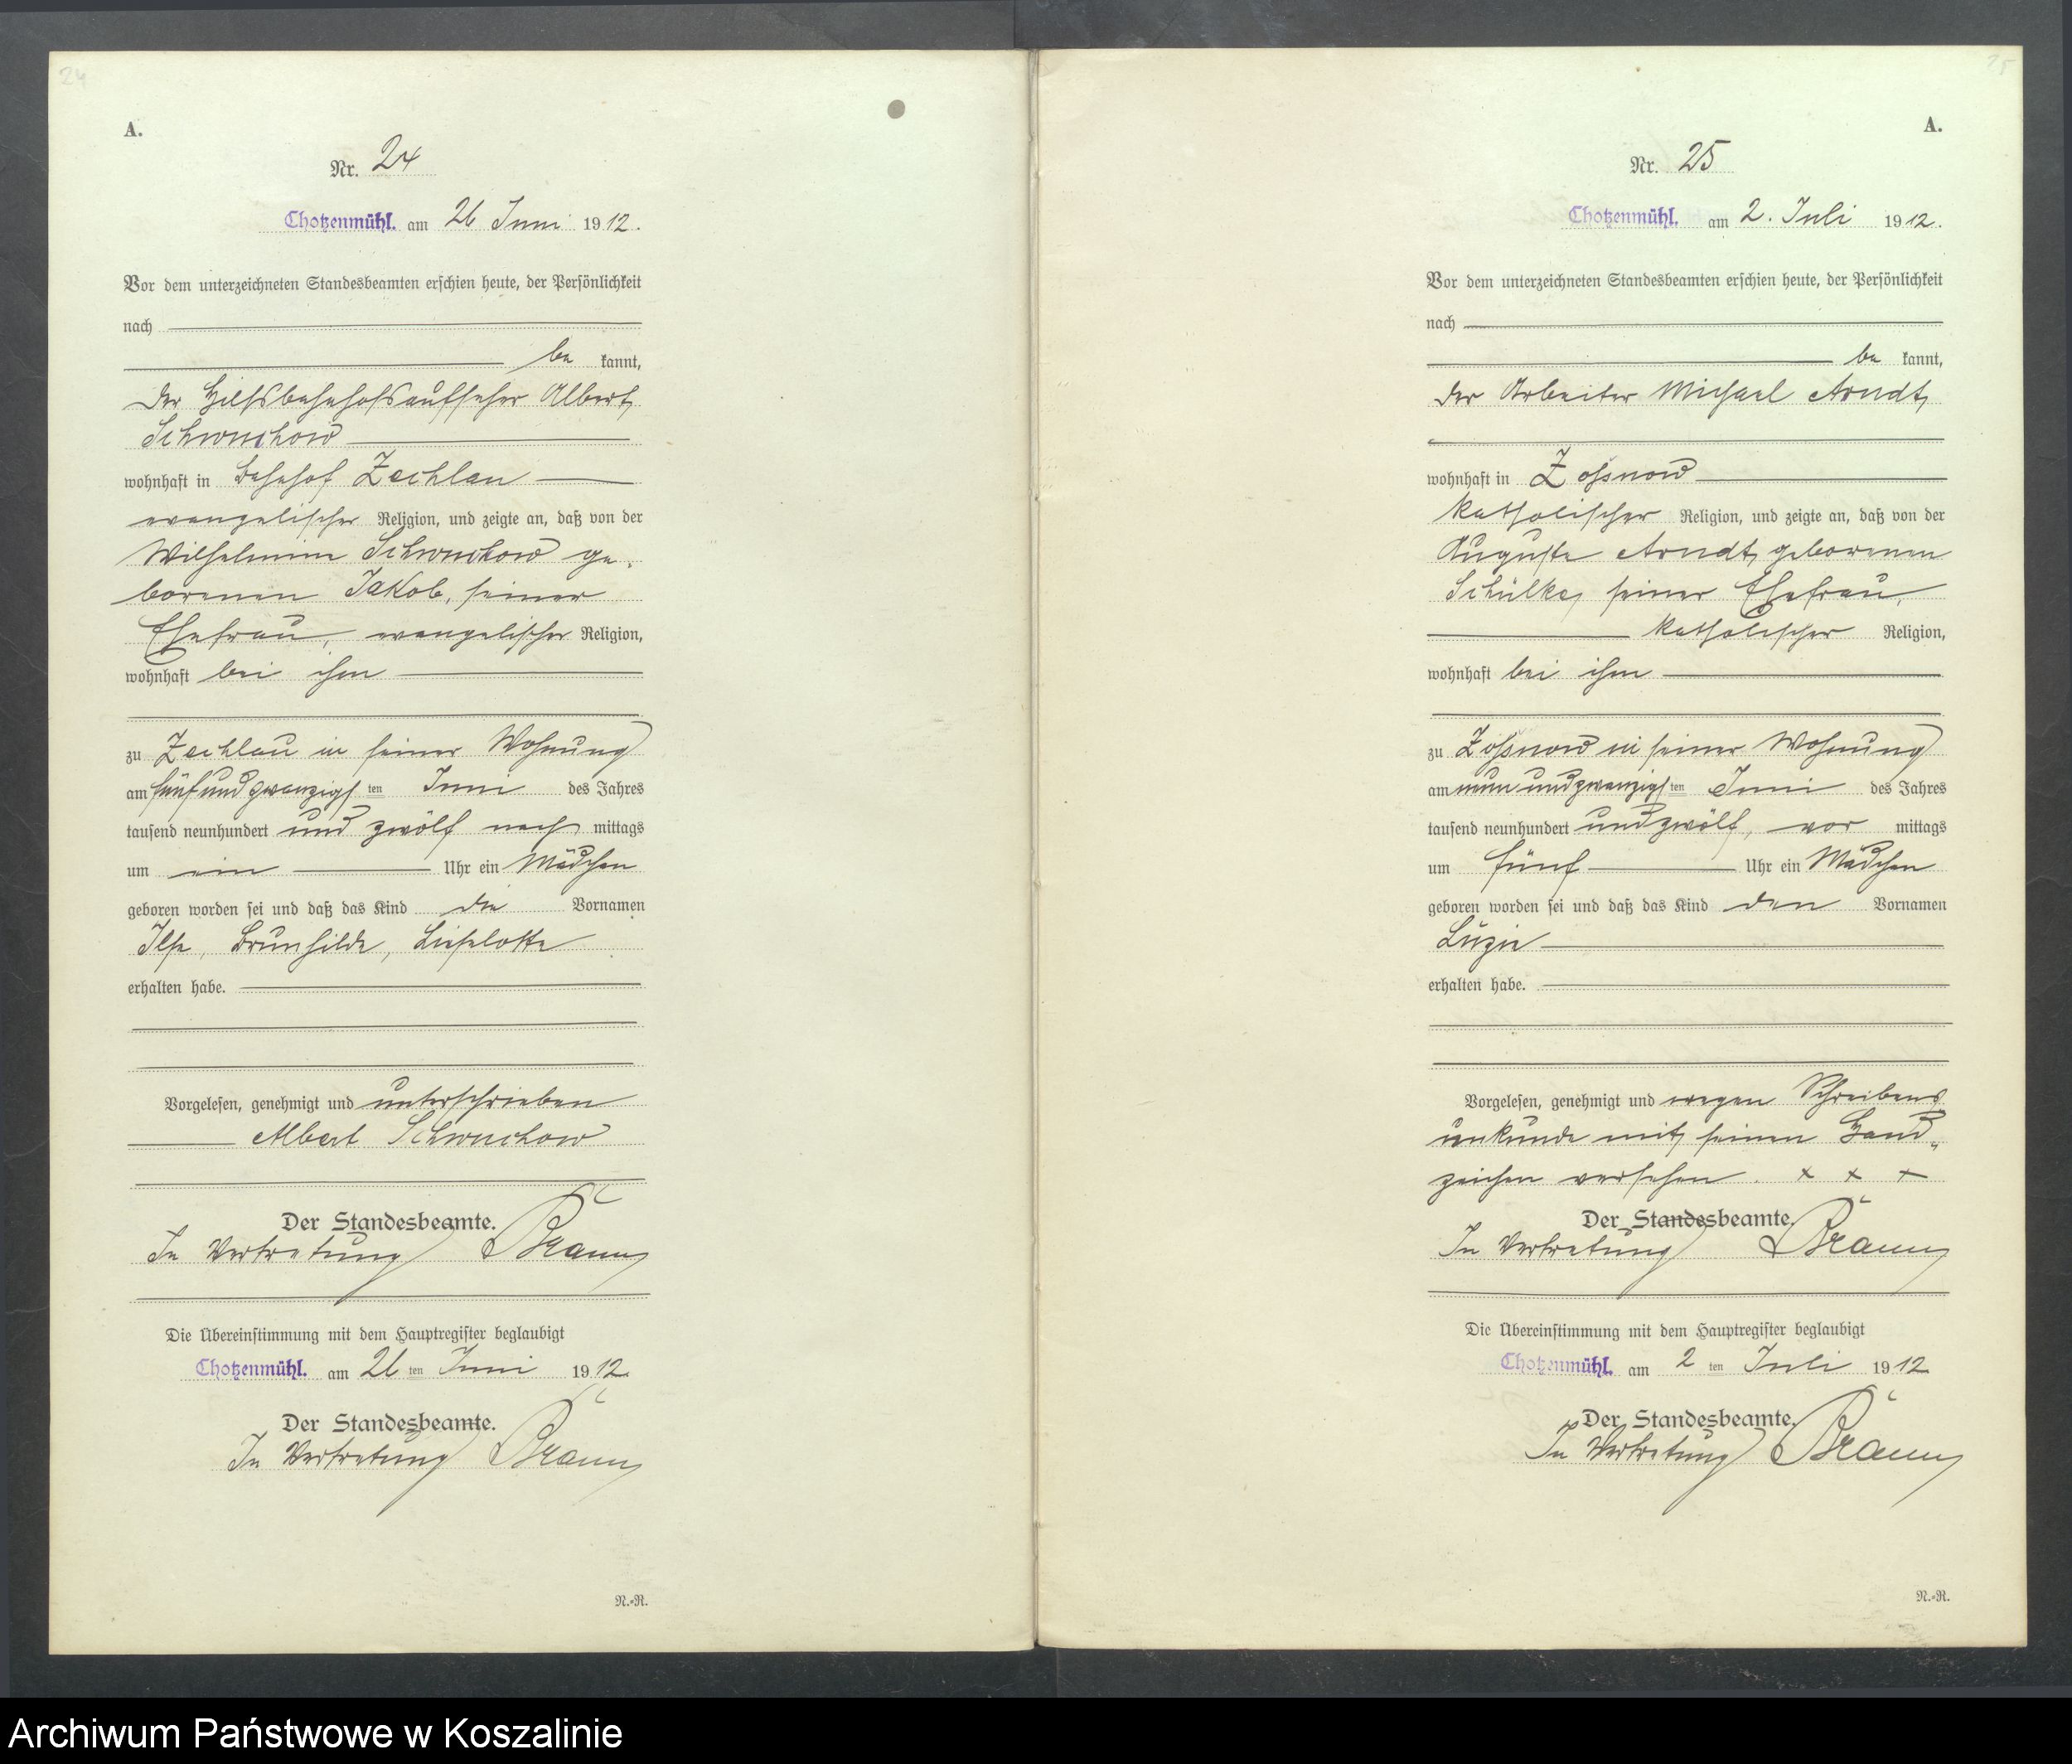 24
A.
Nr. 24
Chotzenmühl. am 26 Juni 1912.
Vor dem unterzeichneten Standesbeamten erschien heute, der Persönlichkeit
nach
be kannt,
der Hilfsbahnhofsaufseher Albert
Schwuchow
wohnhaft in Bahnhof Zechlau
evangelischer Religion, und zeigte an, daß von der
Wilhelmine Schwuchow ge-
borenen Jakob, seiner
Ehefrau, evangelischer Religion,
wohnhaft bei ihm
zu Zechlau in seiner Wohnung
am fünfundzwanzigsten Juni des Jahres
tausend neunhundert und zwölf nach mittags
um ein Uhr ein Mädchen
geboren worden sei und daß das Kind die Vornamen
Ilse, Brunhilde, Lieselotte
erhalten habe.
Vorgelesen, genehmigt und unterschrieben
Albert Schwuchow
Der Standesbeamte.
In Vertretung Braun
Die Übereinstimmung mit dem Hauptregister beglaubigt
Chotzenmühl. am 26 ten Juni 1912.
Der Standesbeamte.
In Vertretung Braun
N.-R.
25
A.
Nr. 25
Chotzenmühl. am 2. Juli 1912.
Vor dem unterzeichneten Standesbeamten erschien heute, der Persönlichkeit
nach
be kannt,
der Arbeiter Michael Arndt,
wohnhaft in Zossnow
katholischer Religion, und zeigte an, daß von der
Auguste Arndt, geborenen
Schülke, seiner Ehefrau,
katholischer Religion,
wohnhaft bei ihm
zu Zossnow in seiner Wohnung
am neunundzwanzigsten Juni des Jahres
tausend neunhundert und zwölf, vor mittags
um fünf Uhr ein Mädchen
geboren worden sei und daß das Kind den Vornamen
Luzie
erhalten habe.
Vorgelesen, genehmigt und wegen Schreibens
unkunde mit seinen Hand-
zeichen versehen. + + +
Der Standesbeamte.
In Vertretung Braun
Die Übereinstimmung mit dem Hauptregister beglaubigt
Chotzenmühl. am 2 ten Juli 1912
Der Standesbeamte.
In Vertretung Braun
N.-R.
Archiwum Państwowe w Koszalinie